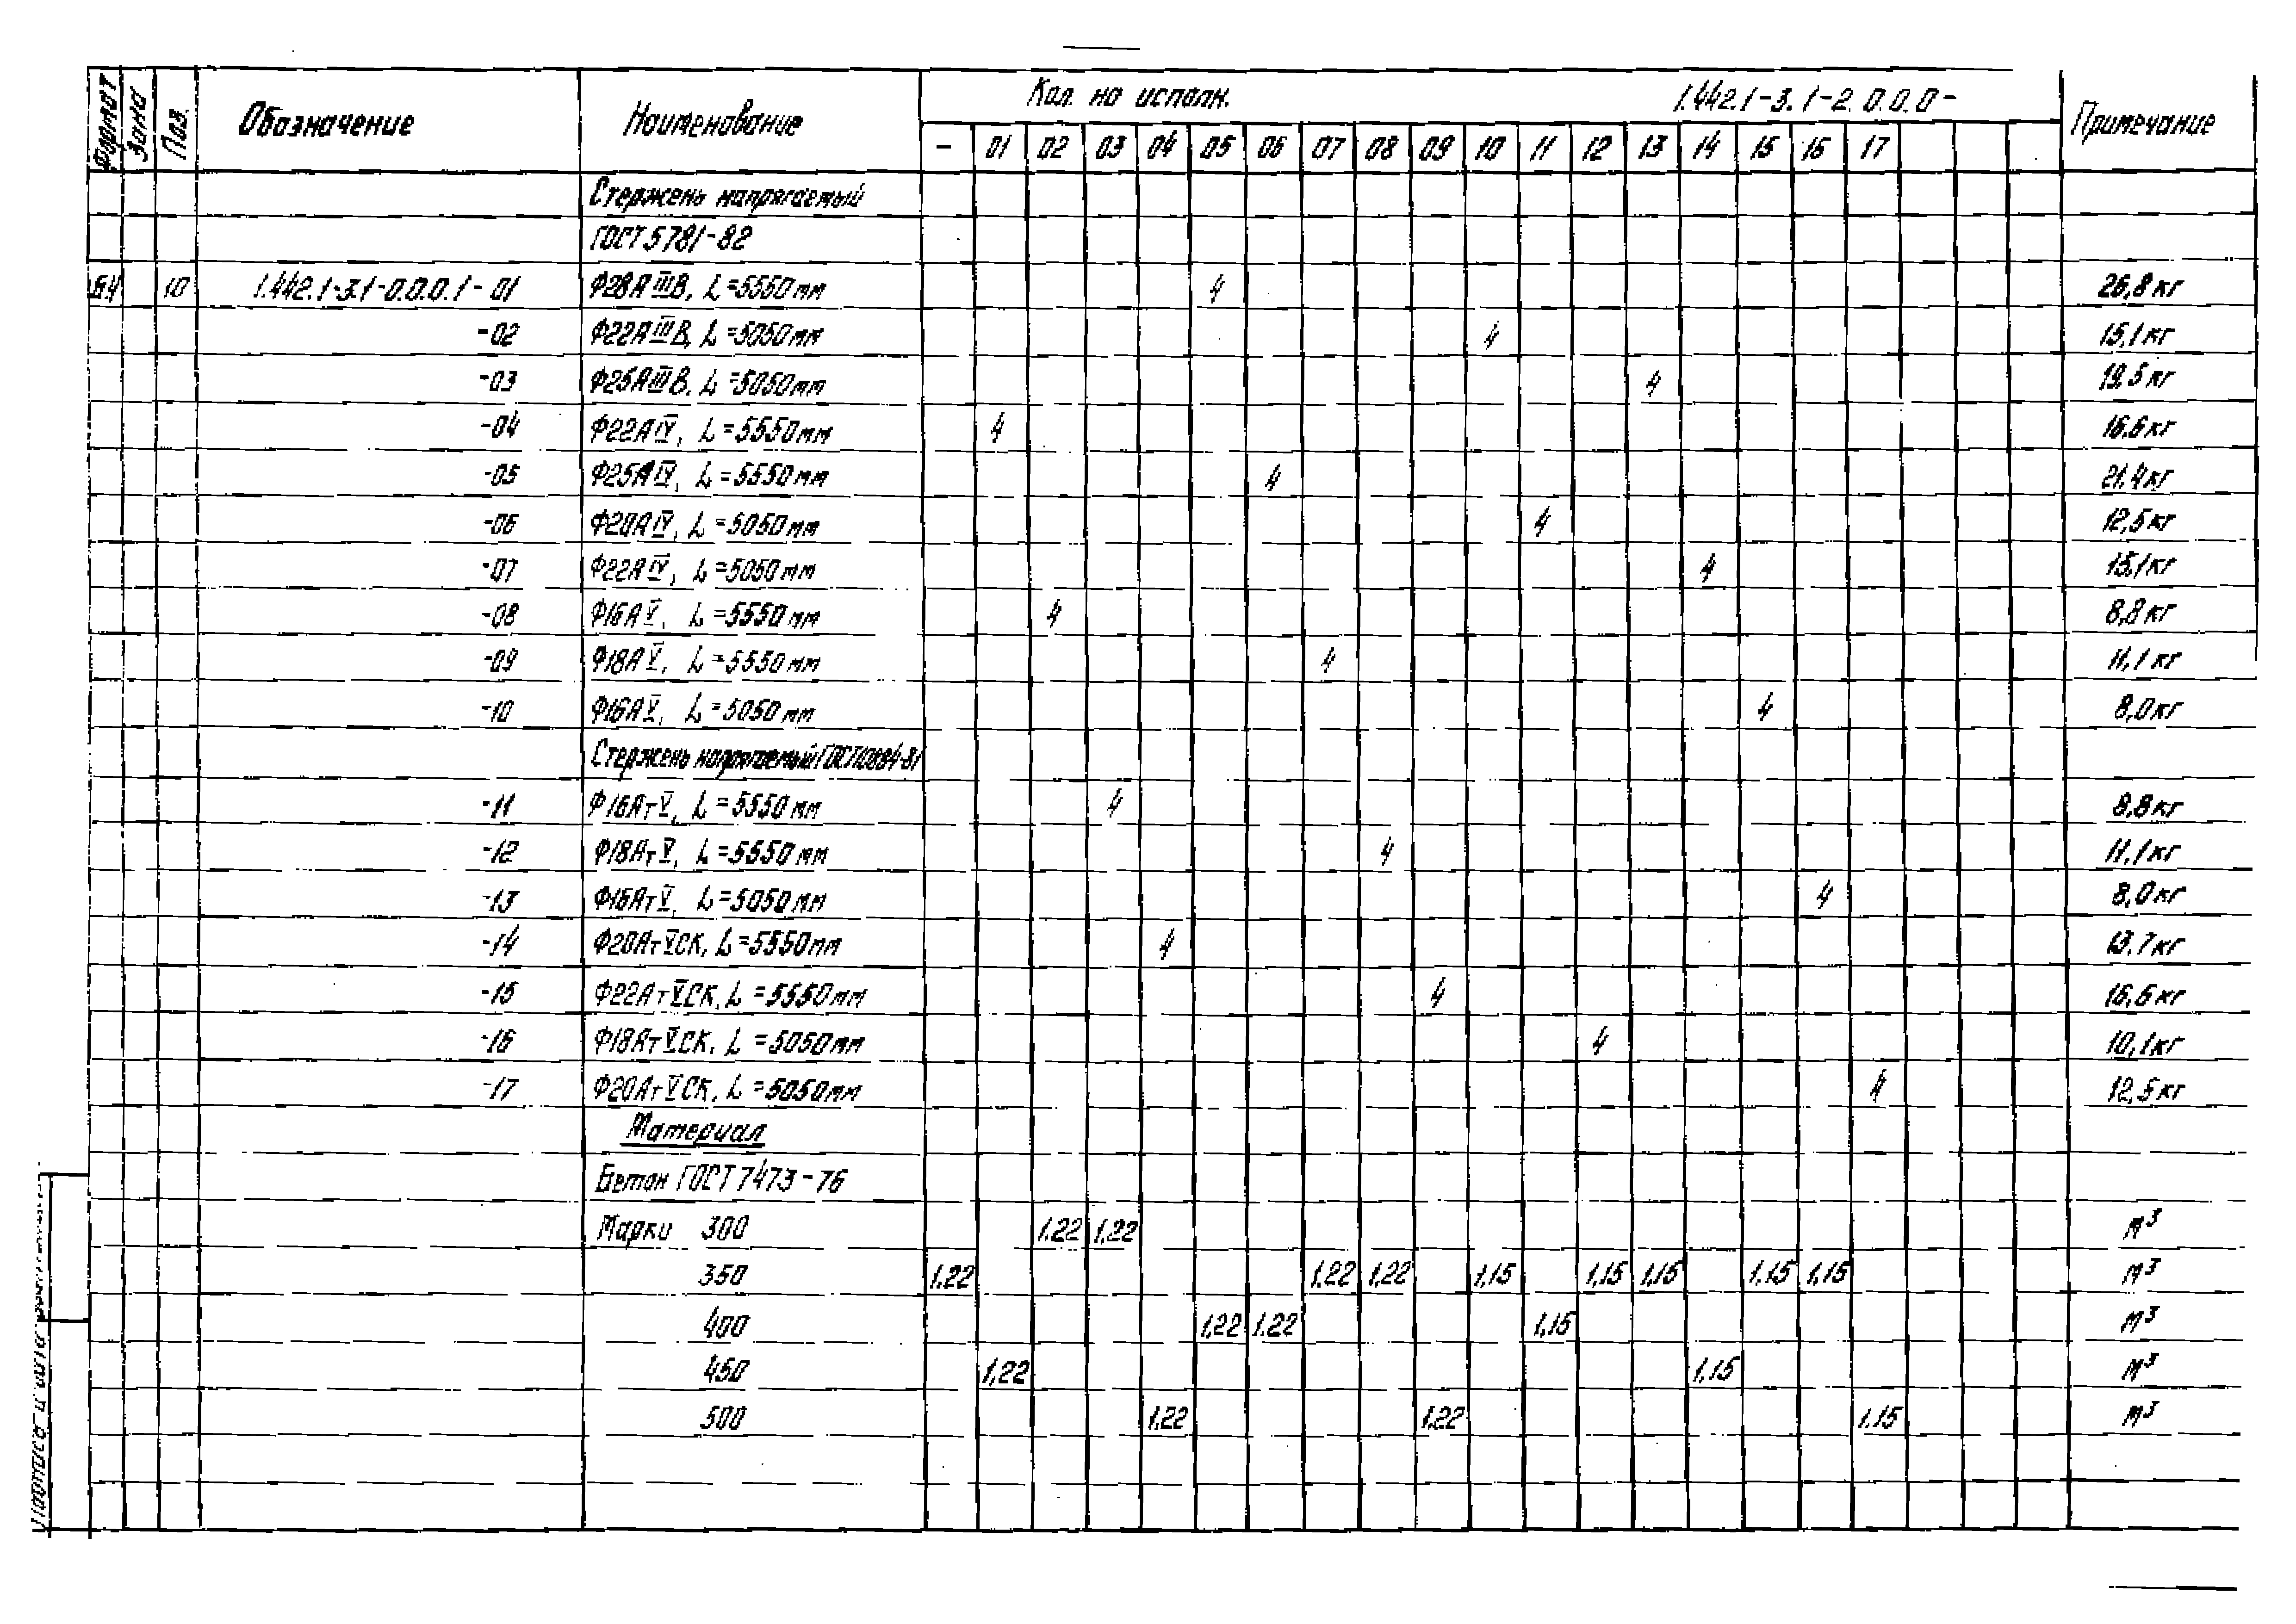 Формат Зона Поз. Обозначение Наименование Кол. на исполн. 1.442.1-3.1-2.0.0.0- Примечание
- 01 02 03 04 05 06 07 08 09 10 11 12 13 14 15 16 17
Стержень напрягаемый
ГОСТ 5781-82
БЧ 10 1.442.1-3.1-0.0.0.1-01 Ф28АIIIВ, L=5550мм 4 26,8кг
-02 Ф22АIIIВ, L=5050мм 4 15,1кг
-03 Ф25АIIIВ, L=5050мм 4 19,5кг
-04 Ф22АIV, L=5550мм 4 16,6кг
-05 Ф25АIV, L=5550мм 4 21.4кг
-06 Ф20АIV, L=5050мм 4 12,5кг
-07 Ф22АIV, L=5050мм 4 15,1кг
-08 Ф16АV, L=5550мм 4 8,8кг
-09 Ф18АV, L=5550мм 4 11,1кг
-10 Ф16АV, L=5050мм 4 8,0кг
Стержень напрягаемый ГОСТ10884-81
-11 Ф16АтV, L=5550мм 4 8,8кг
-12 Ф18АтV, L=5550мм 4 11,1кг
-13 Ф16АтV, L=5050мм 4 8,0кг
-14 Ф20АтVСК, L=5550мм 4 13,7кг
-15 Ф22АтVСК, L=5550мм 4 16,6кг
-16 Ф18АтVСК, L=5050мм 4 10,1кг
-17 Ф20АтVСК, L=5050мм 4 12,5кг
Материал
Бетон ГОСТ 7473-76
Марки 300 1.22 1,22 м³
350 1.22 1.22 1,22 1,15 1,15 1,15 1,15 1,15 м³
400 1,22 1.22 1,15 м³
450 1,22 1,15 м³
500 1,22 1.22 1.15 м³